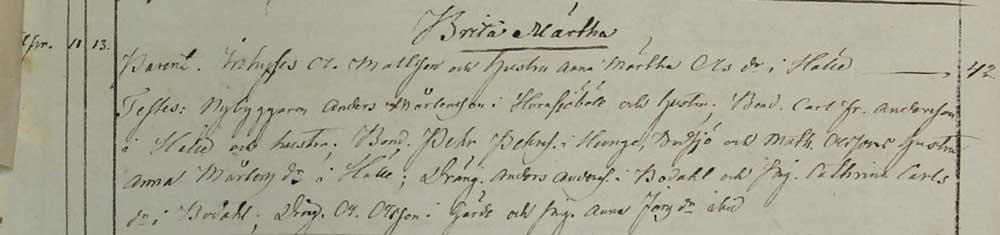 Brita Märtha
11 13.
Parent. Ol. Mattson och hustru Anna Märtha Ols dr i Hålie — 42
Testes: Nybyggaren Anders Mårtenson i Hornsjöböle och hustru. Bond. Carl Fr. Anderson
i Hålie och hustru. Bond. Pehr Pehrs. i och Math. Olssons hustru
Anna Mårtens dr i Hålie; Dräng. Anders Anders. i Bodahl och Pig. Cathrina Carls
dr i Bodahl; Dräng. Ol. Olsson i Gärde och Pig. Anna Jons dr ibid